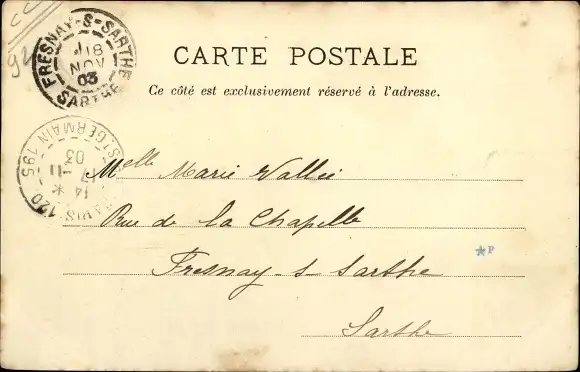 CC
94
FRESNAY-S-SARTHE
18
NOV
03
SARTHE
CARTE POSTALE
Ce côté est exclusivement réservé à l'adresse.
ST GERMAIN 195
PARIS. 120
14 *
7-11
03
Melle Marie Vallée
Rue de la Chapelle
Fresnay-s-Sarthe
*P
Sarthe